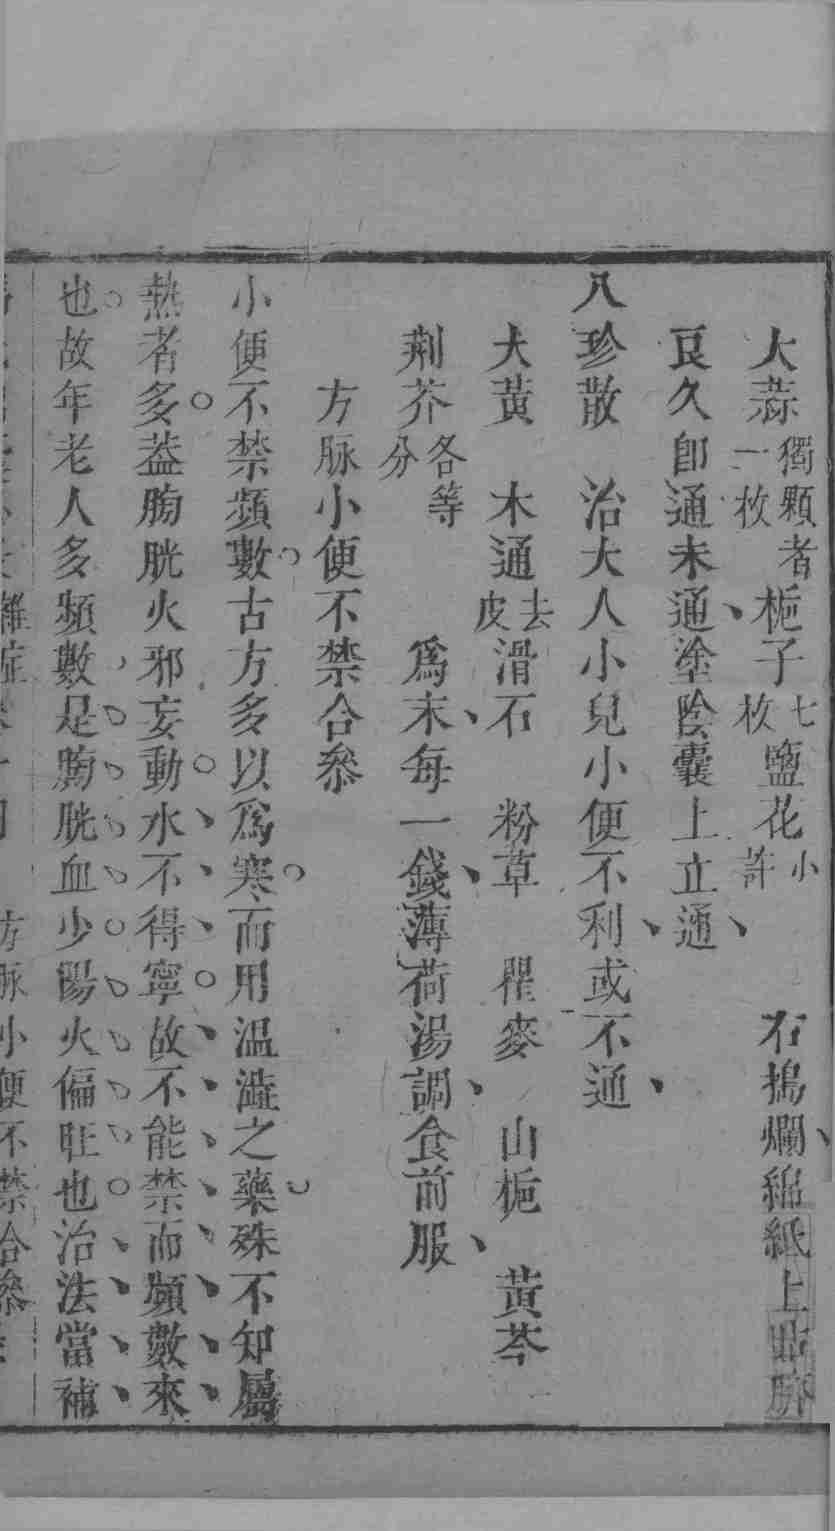 大蒜獨顆者一枚梔子七枚鹽花小許 右搗爛綿紙上貼臍
良久卽通未通塗陰囊上立通
八珍散 治大人小兒小便不利或不通
大黃 木通去皮滑石 粉草 瞿麥 山梔 黃芩
荆芥各等分 爲末每一錢薄荷湯調食前服
方脉小便不禁合參
小便不禁頻數古方多以爲寒而用温澁之藥殊不知屬
熱者多葢膀胱火邪妄動水不得寧故不能禁而頻數來
也故年老人多頻數是膀胱血少陽火偏旺也治法當補
雜症 方脉小便不禁合參